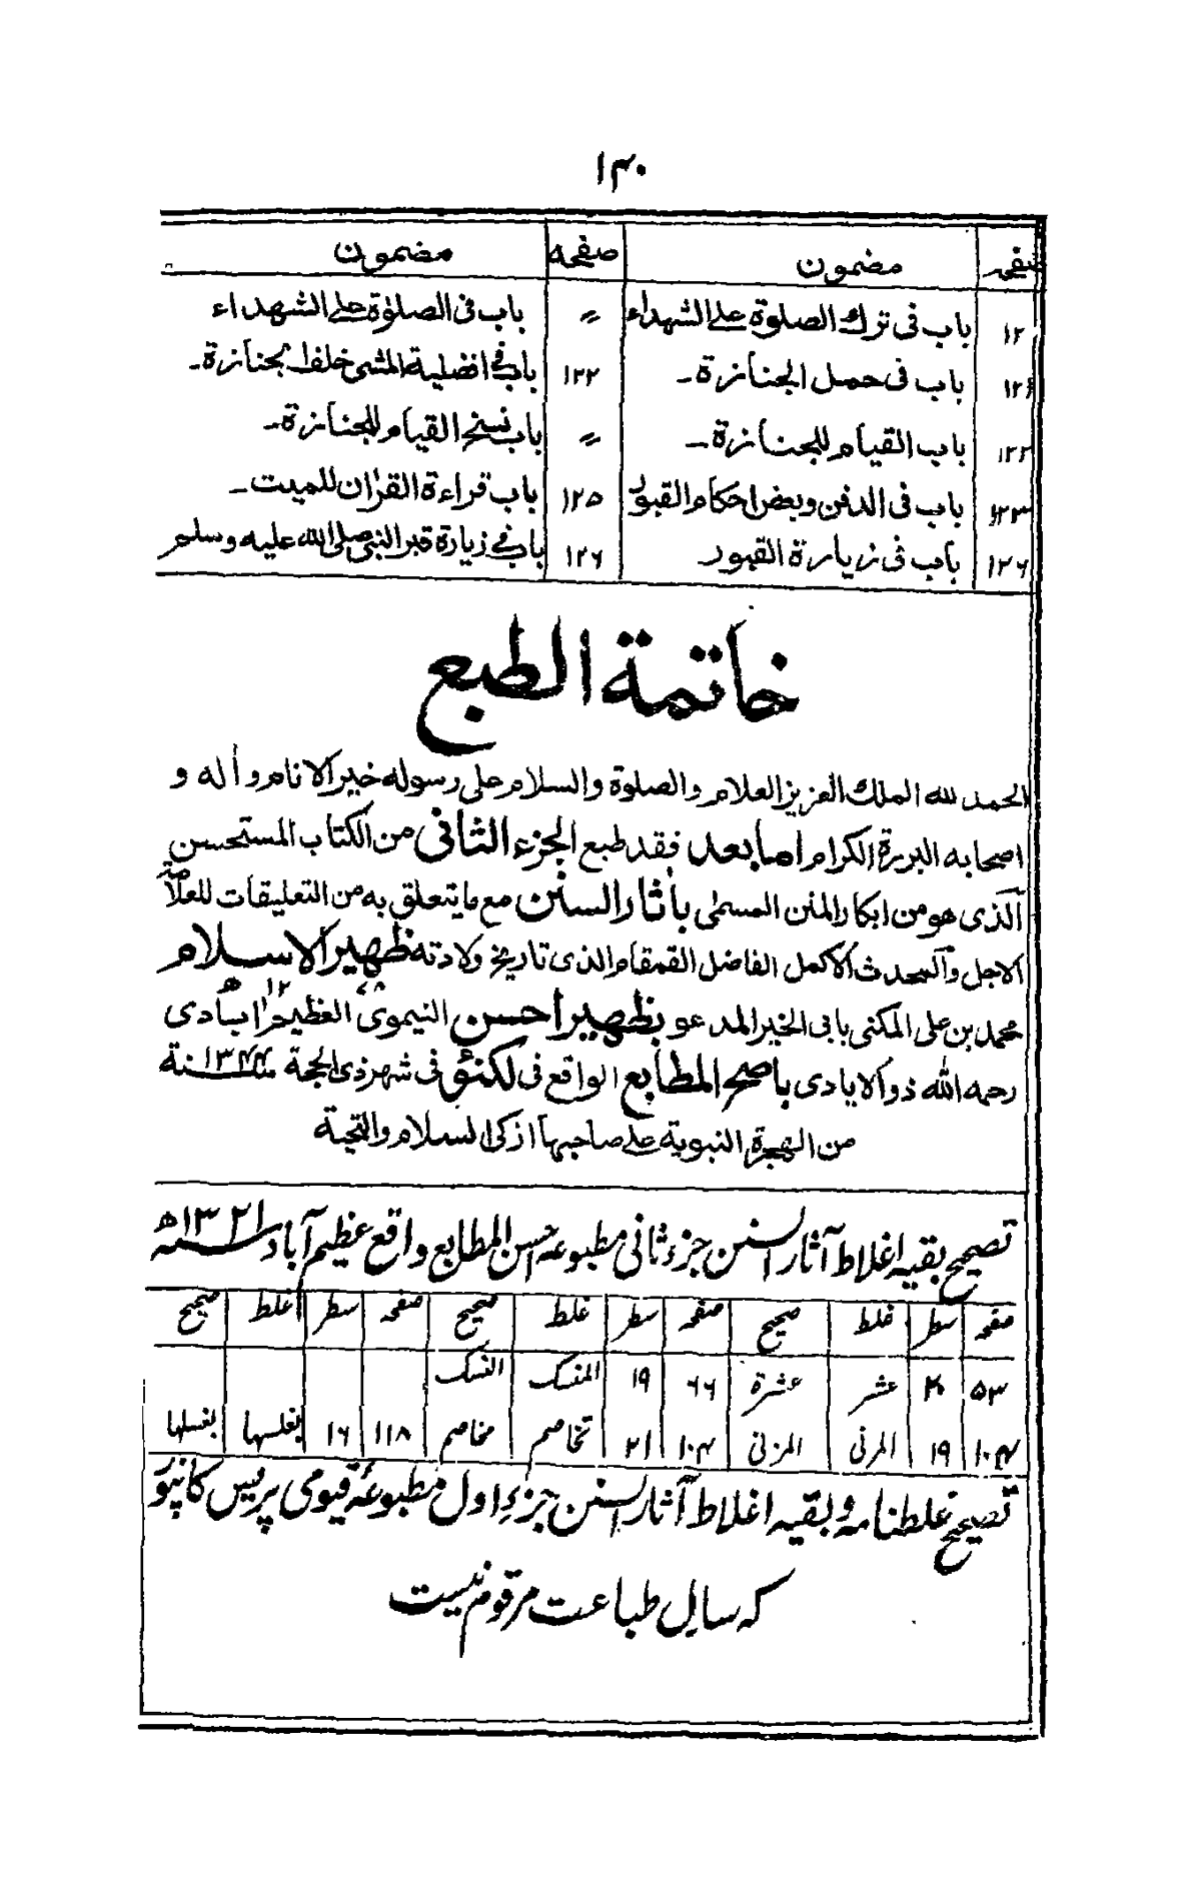 ۱۳۰
صفحہ مضمون صفحه مضمون
۱۲ باب فى ترك الصلوة على الشهداء 〃 باب فى الصلوٰة على الشهداء
۱۲۱ باب فى حمل الجنازة۔ ۱۲۲ باب فى افضلية المشى خلف الجنازة۔
۱۲۲ باب القيام للجنازة۔ 〃 باب نسخ القيام للجنازة۔
۱۲۳ باب فى الدفن وبعض احكام القبور ۱۲۵ باب قراءة القراٰن للميت۔
۱۲۶ باب فى زيارة القبور ۱۲۶ باب فى زيارة قبر النبى صلى الله عليه وسلم
خاتمة الطبع
الحمد لله الملك العزيز العلام والصلوة والسلام على رسوله خير الانام واٰله و
اصحابه البررة الكرام اما بعد فقد طبع الجزء الثانى من الكتاب المستحسن
الذى هو من ابكار المنن المسمٰى باٰثار السنن مع ما يتعلق به من التعليقات للعلامة
الاجل والمحدث الاكمل الفاضل القمقام الذى تاريخ ولادته ظهير الاسلام
محمد بن على المكنى بابى الخير المدعو بظهير احسن النيموى العظيم اٰبادى
رحمه الله ذو الايادى باصح المطابع الواقع فى لكنئو فى شهر ذى الحجة سنة ۱۳۴۴
من الهجرة النبوية على صاحبها ازكى السلام والتحية
تصحیح بقیہ اغلاط آثار السنن جزء ثانی مطبوعہ احسن المطابع واقع عظیم آباد سنہ ۱۳۲۱ھ
صفحہ سطر غلط صحیح صفحہ سطر غلط صحیح صفحہ سطر غلط صحیح
۵۳ ۲۰ عشر عشرة ۶۶ ۱۹ المنسك النسك
۱۰۴ ۱۹ المرنی المزنی ۱۰۴ ۲۱ تخاصم مخاصم ۱۱۸ ۱۶ بغلسها بغسلها
تصحیح غلطنامہ و بقیہ اغلاط آثار السنن جزءِ اول مطبوعۂ قیومی پریس کانپور
کہ سالِ طباعت مرقوم نیست